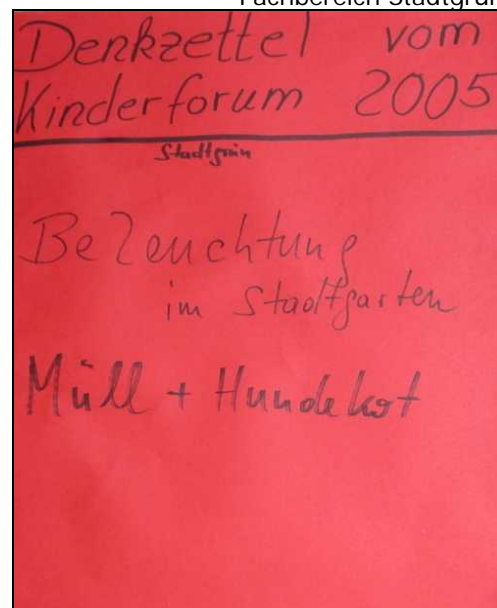 Fachbereich Stadtgrün
Denkzettel vom
Kinderforum 2005
Stadtgrün
Beleuchtung
im Stadtgarten
Müll + Hundekot